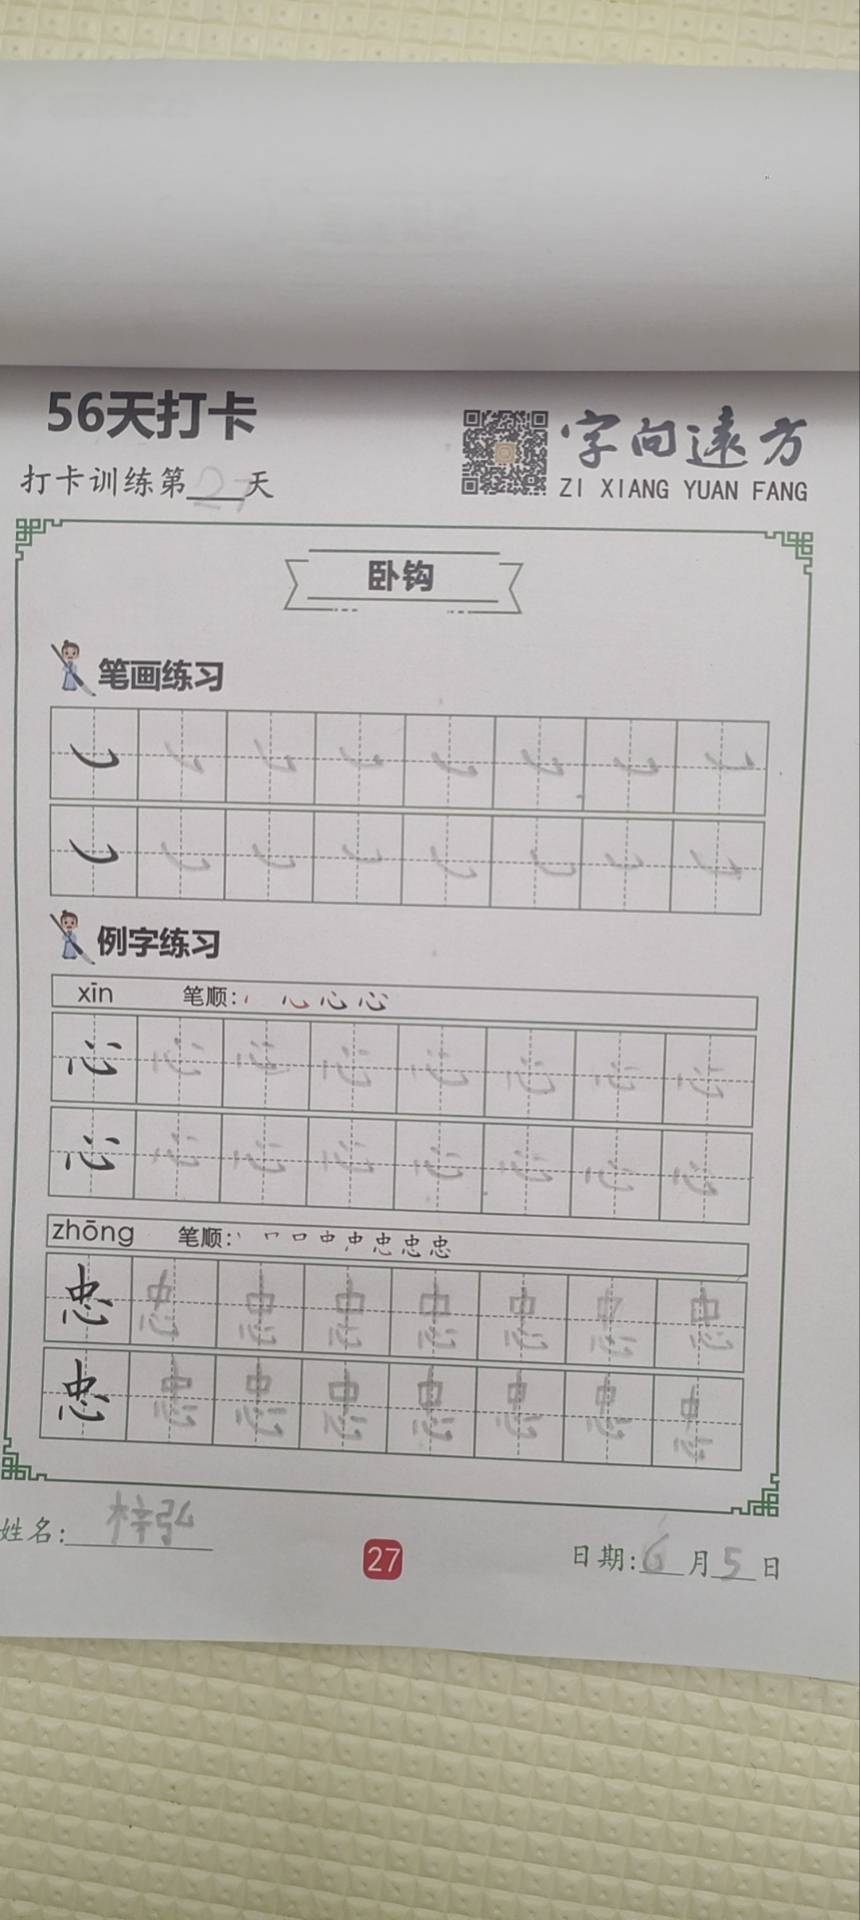 56天打卡
字向遠方
打卡训练第27天
ZI XIANG YUAN FANG
卧钩
笔画练习
例字练习
xīn 笔顺: 心
心 心 心 心 心 心 心 心
心 心 心 心 心 心 心 心
zhōng 笔顺: 丶 口 中 忠 忠 忠
忠 忠 忠 忠 忠 忠 忠 忠
忠 忠 忠 忠 忠 忠 忠 忠
姓名: 梓弘
27
日期: 6月5日